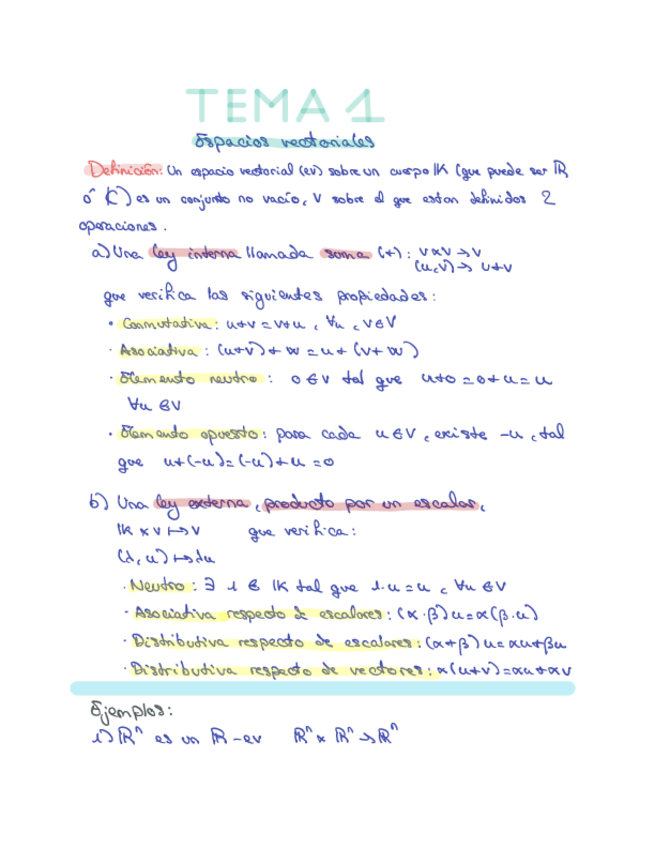 TEMA 1
Espacios vectoriales
Definición: Un espacio vectorial (ev) sobre un cuerpo K (que puede ser ℝ
ó ℂ) es un conjunto no vacío, V sobre el que estan definidos 2
operaciones.
a) Una ley interna llamada suma (+): V×V → V
(u,v) → u+v
que verifica las siguientes propiedades:
· Conmutativa: u+v=v+u, ∀u, v∈V
· Asociativa: (u+v)+w=u+(v+w)
· Elemento neutro: 0∈V tal que u+0=0+u=u
∀u∈V
· Elemento opuesto: para cada u∈V, existe -u, tal
que u+(-u)=(-u)+u=0
b) Una ley externa, producto por un escalar,
K×V ↦ V que verifica:
(λ,u) ↦ λu
· Neutro: ∃ 1 ∈ K tal que 1·u=u, ∀u∈V
· Asociativa respecto de escalares: (α·β)u=α(β·u)
· Distributiva respecto de escalares: (α+β)u=αu+βu
· Distributiva respecto de vectores: α(u+v)=αu+αv
Ejemplos:
1) ℝⁿ es un ℝ-ev ℝⁿ×ℝⁿ→ℝⁿ